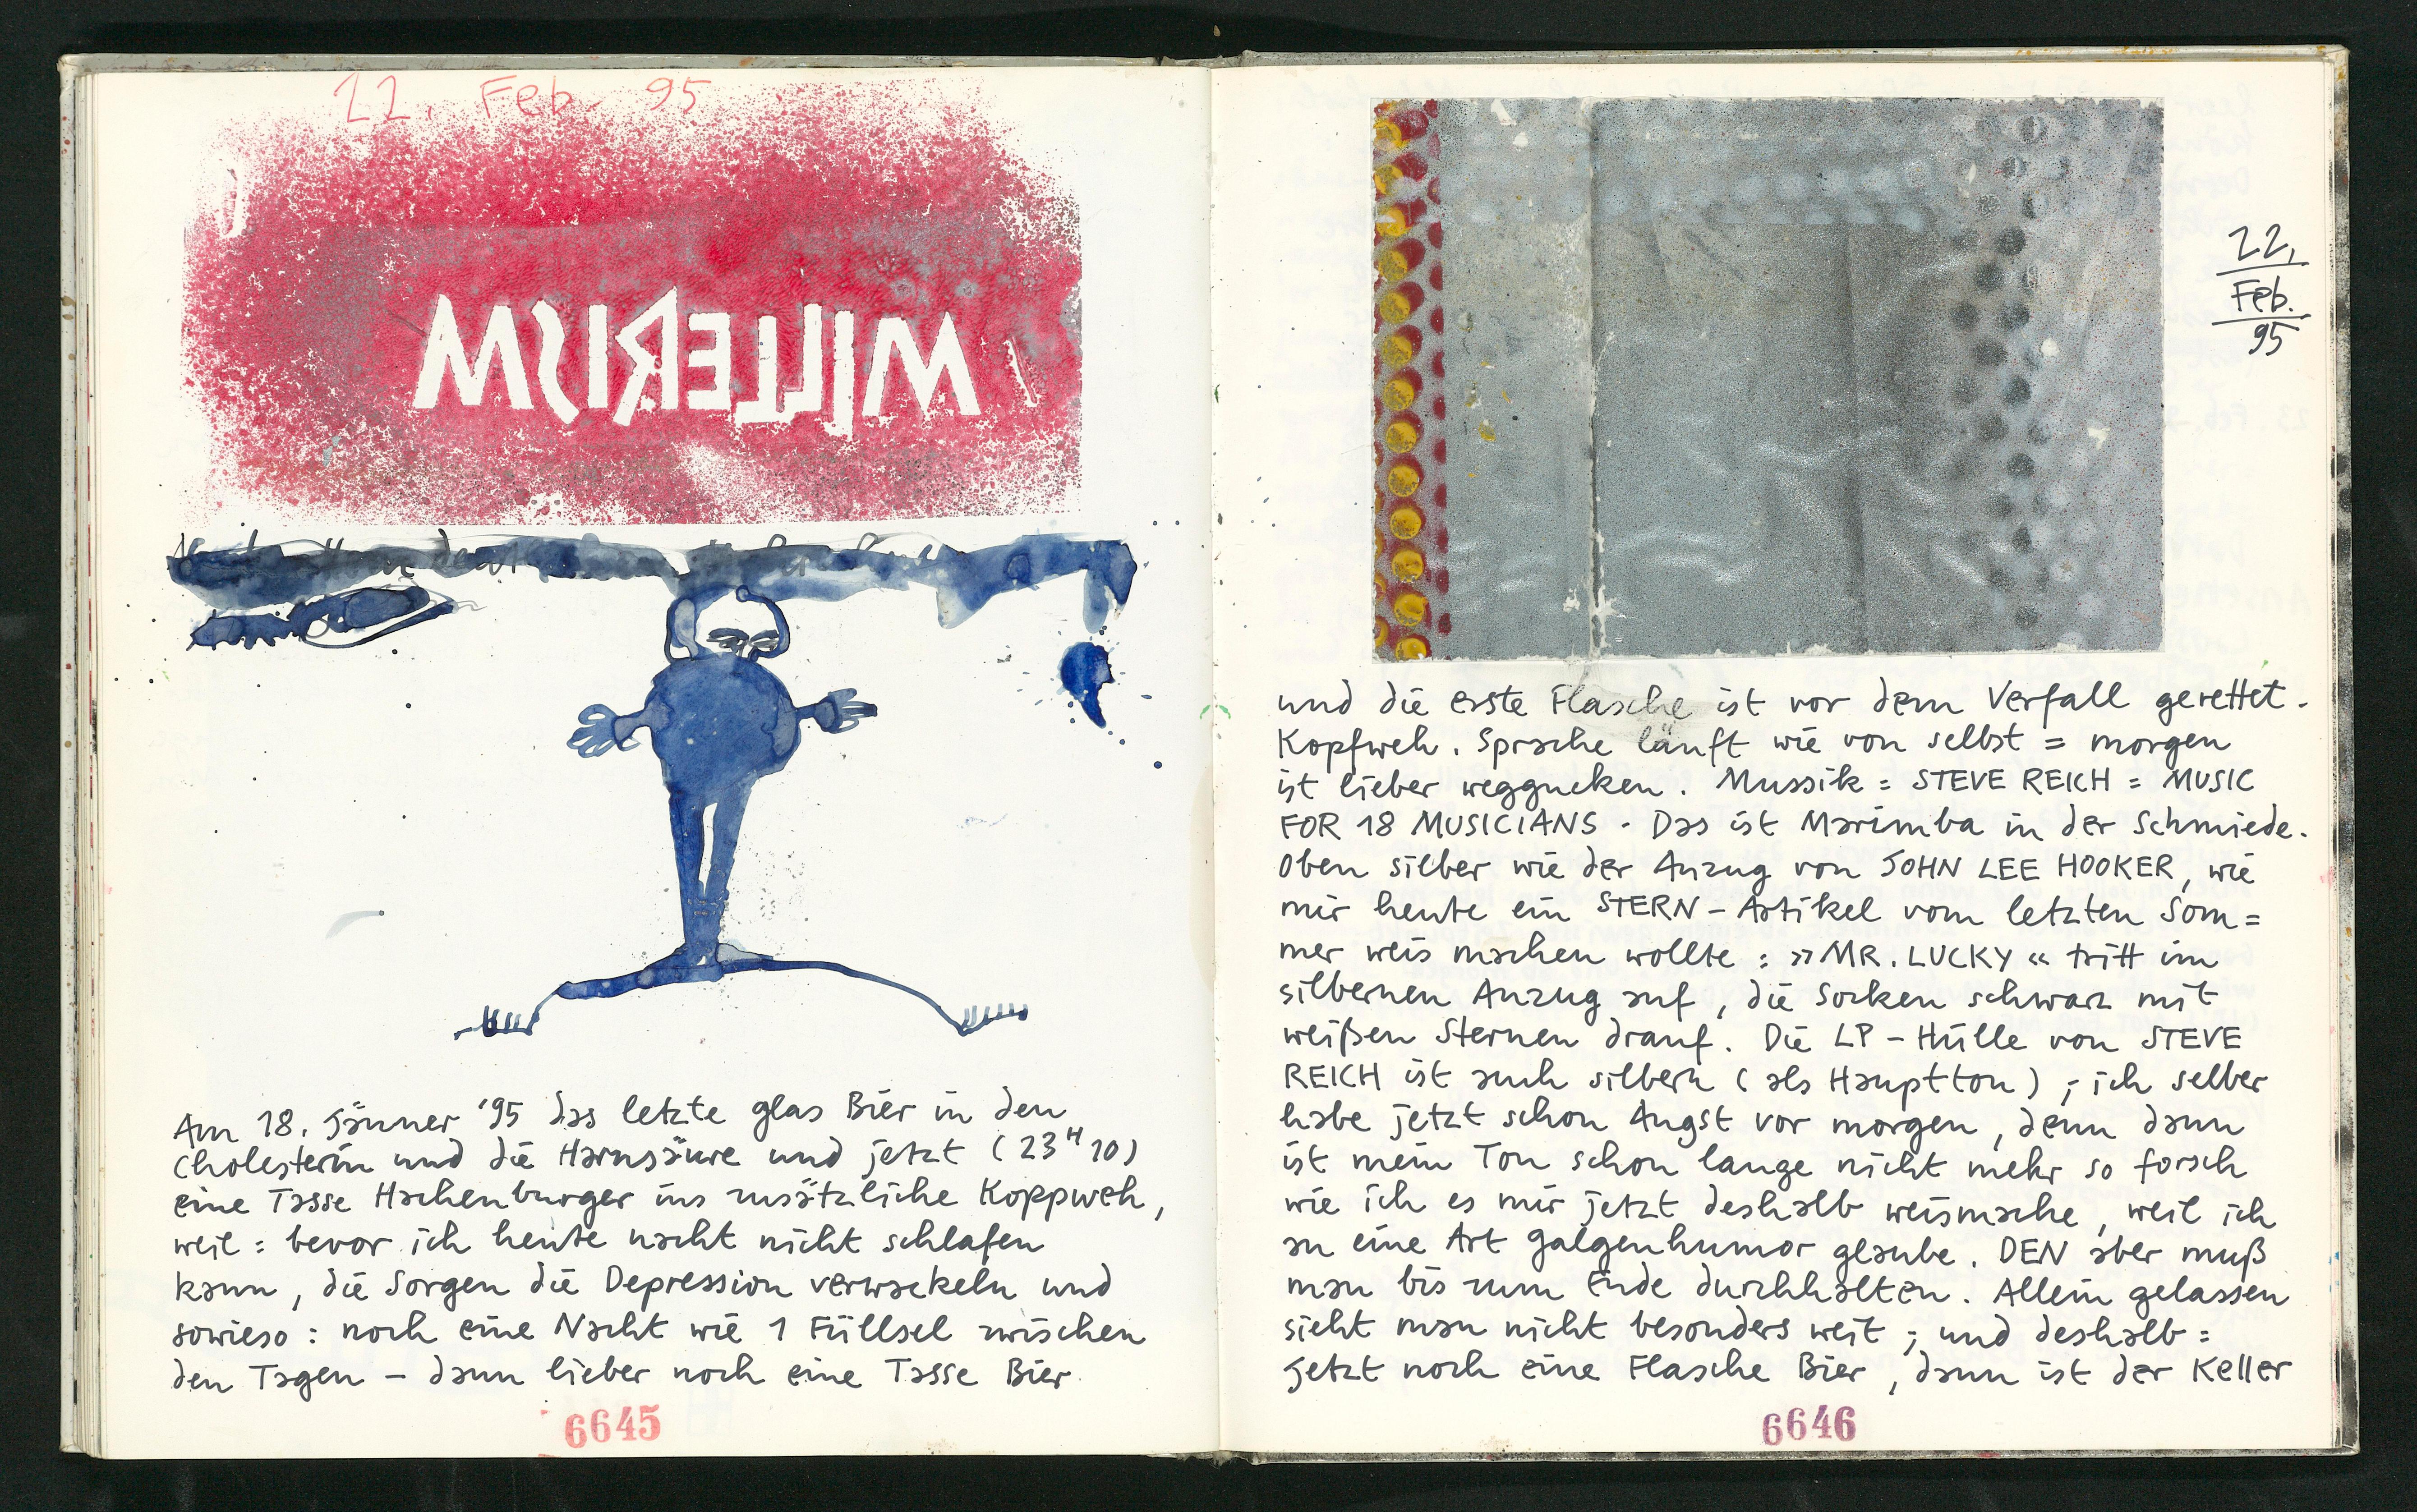 22. Feb. 95
MILLERISM
Am 18. Jänner '95 das letzte glas Bier in den
Cholesterin und die Harnsäure und jetzt (23H10)
eine Tasse Hachenburger ins zusätzliche Koppweh,
weil : bevor ich heute nacht nicht schlafen
kann, die Sorgen die Depression verwackeln und
sowieso : noch eine Nacht wie 1 Füllsel zwischen
den Tagen – dann lieber noch eine Tasse Bier
6645
22.
Feb.
95
und die erste Flasche ist vor dem Verfall gerettet.
Kopfweh. Sprache läuft wie von selbst = morgen
ist lieber weggucken. Mussik = STEVE REICH = MUSIC
FOR 18 MUSICIANS. Das ist Marimba in der Schmiede.
Oben silber wie der Anzug von JOHN LEE HOOKER, wie
mir heute ein STERN-Artikel vom letzten Som=
mer weis machen wollte : »MR. LUCKY« tritt im
silbernen Anzug auf, die Socken schwarz mit
weißen Sternen drauf. Die LP-Hülle von STEVE
REICH ist auch silbern (als Hauptton) ; ich selber
habe jetzt schon Angst vor morgen, denn dann
ist mein Ton schon lange nicht mehr so forsch
wie ich es mir jetzt deshalb weismache, weil ich
an eine Art Galgenhumor glaube. DEN aber muß
man bis zum Ende durchhalten. Allein gelassen
sieht man nicht besonders weit ; und deshalb :
Jetzt noch eine Flasche Bier, dann ist der Keller
6646